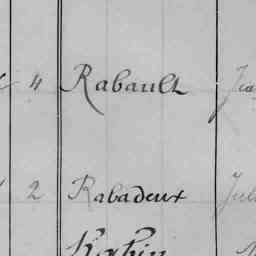 4 Rabault
2 Rabadeux
Rabin